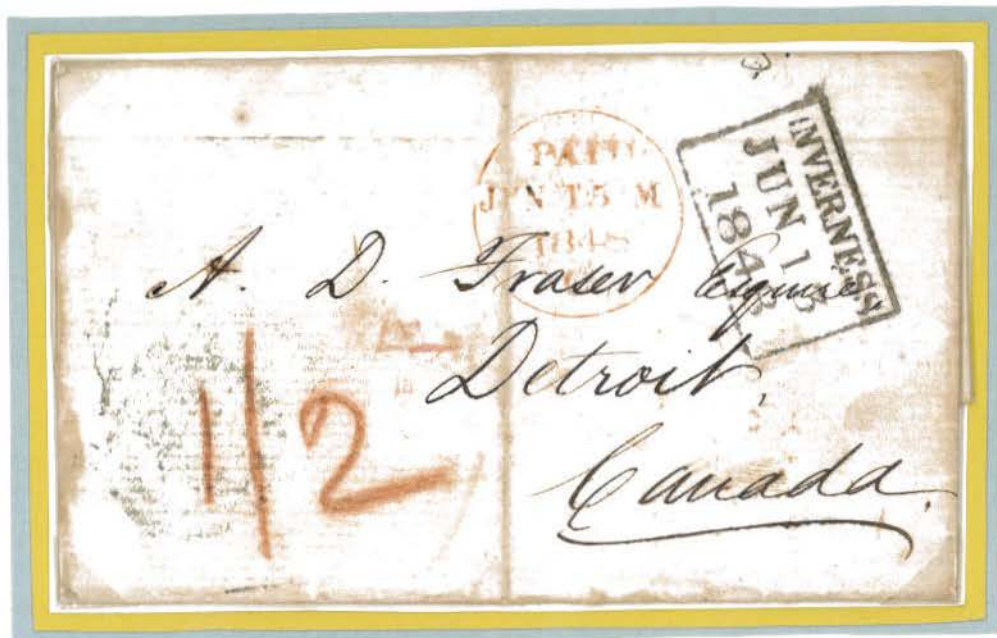 PAID
JUN 15 M
1848
INVERNESS
JUN 13
1848
A. D. Fraser Esquire
Detroit,
Canada.
1/2